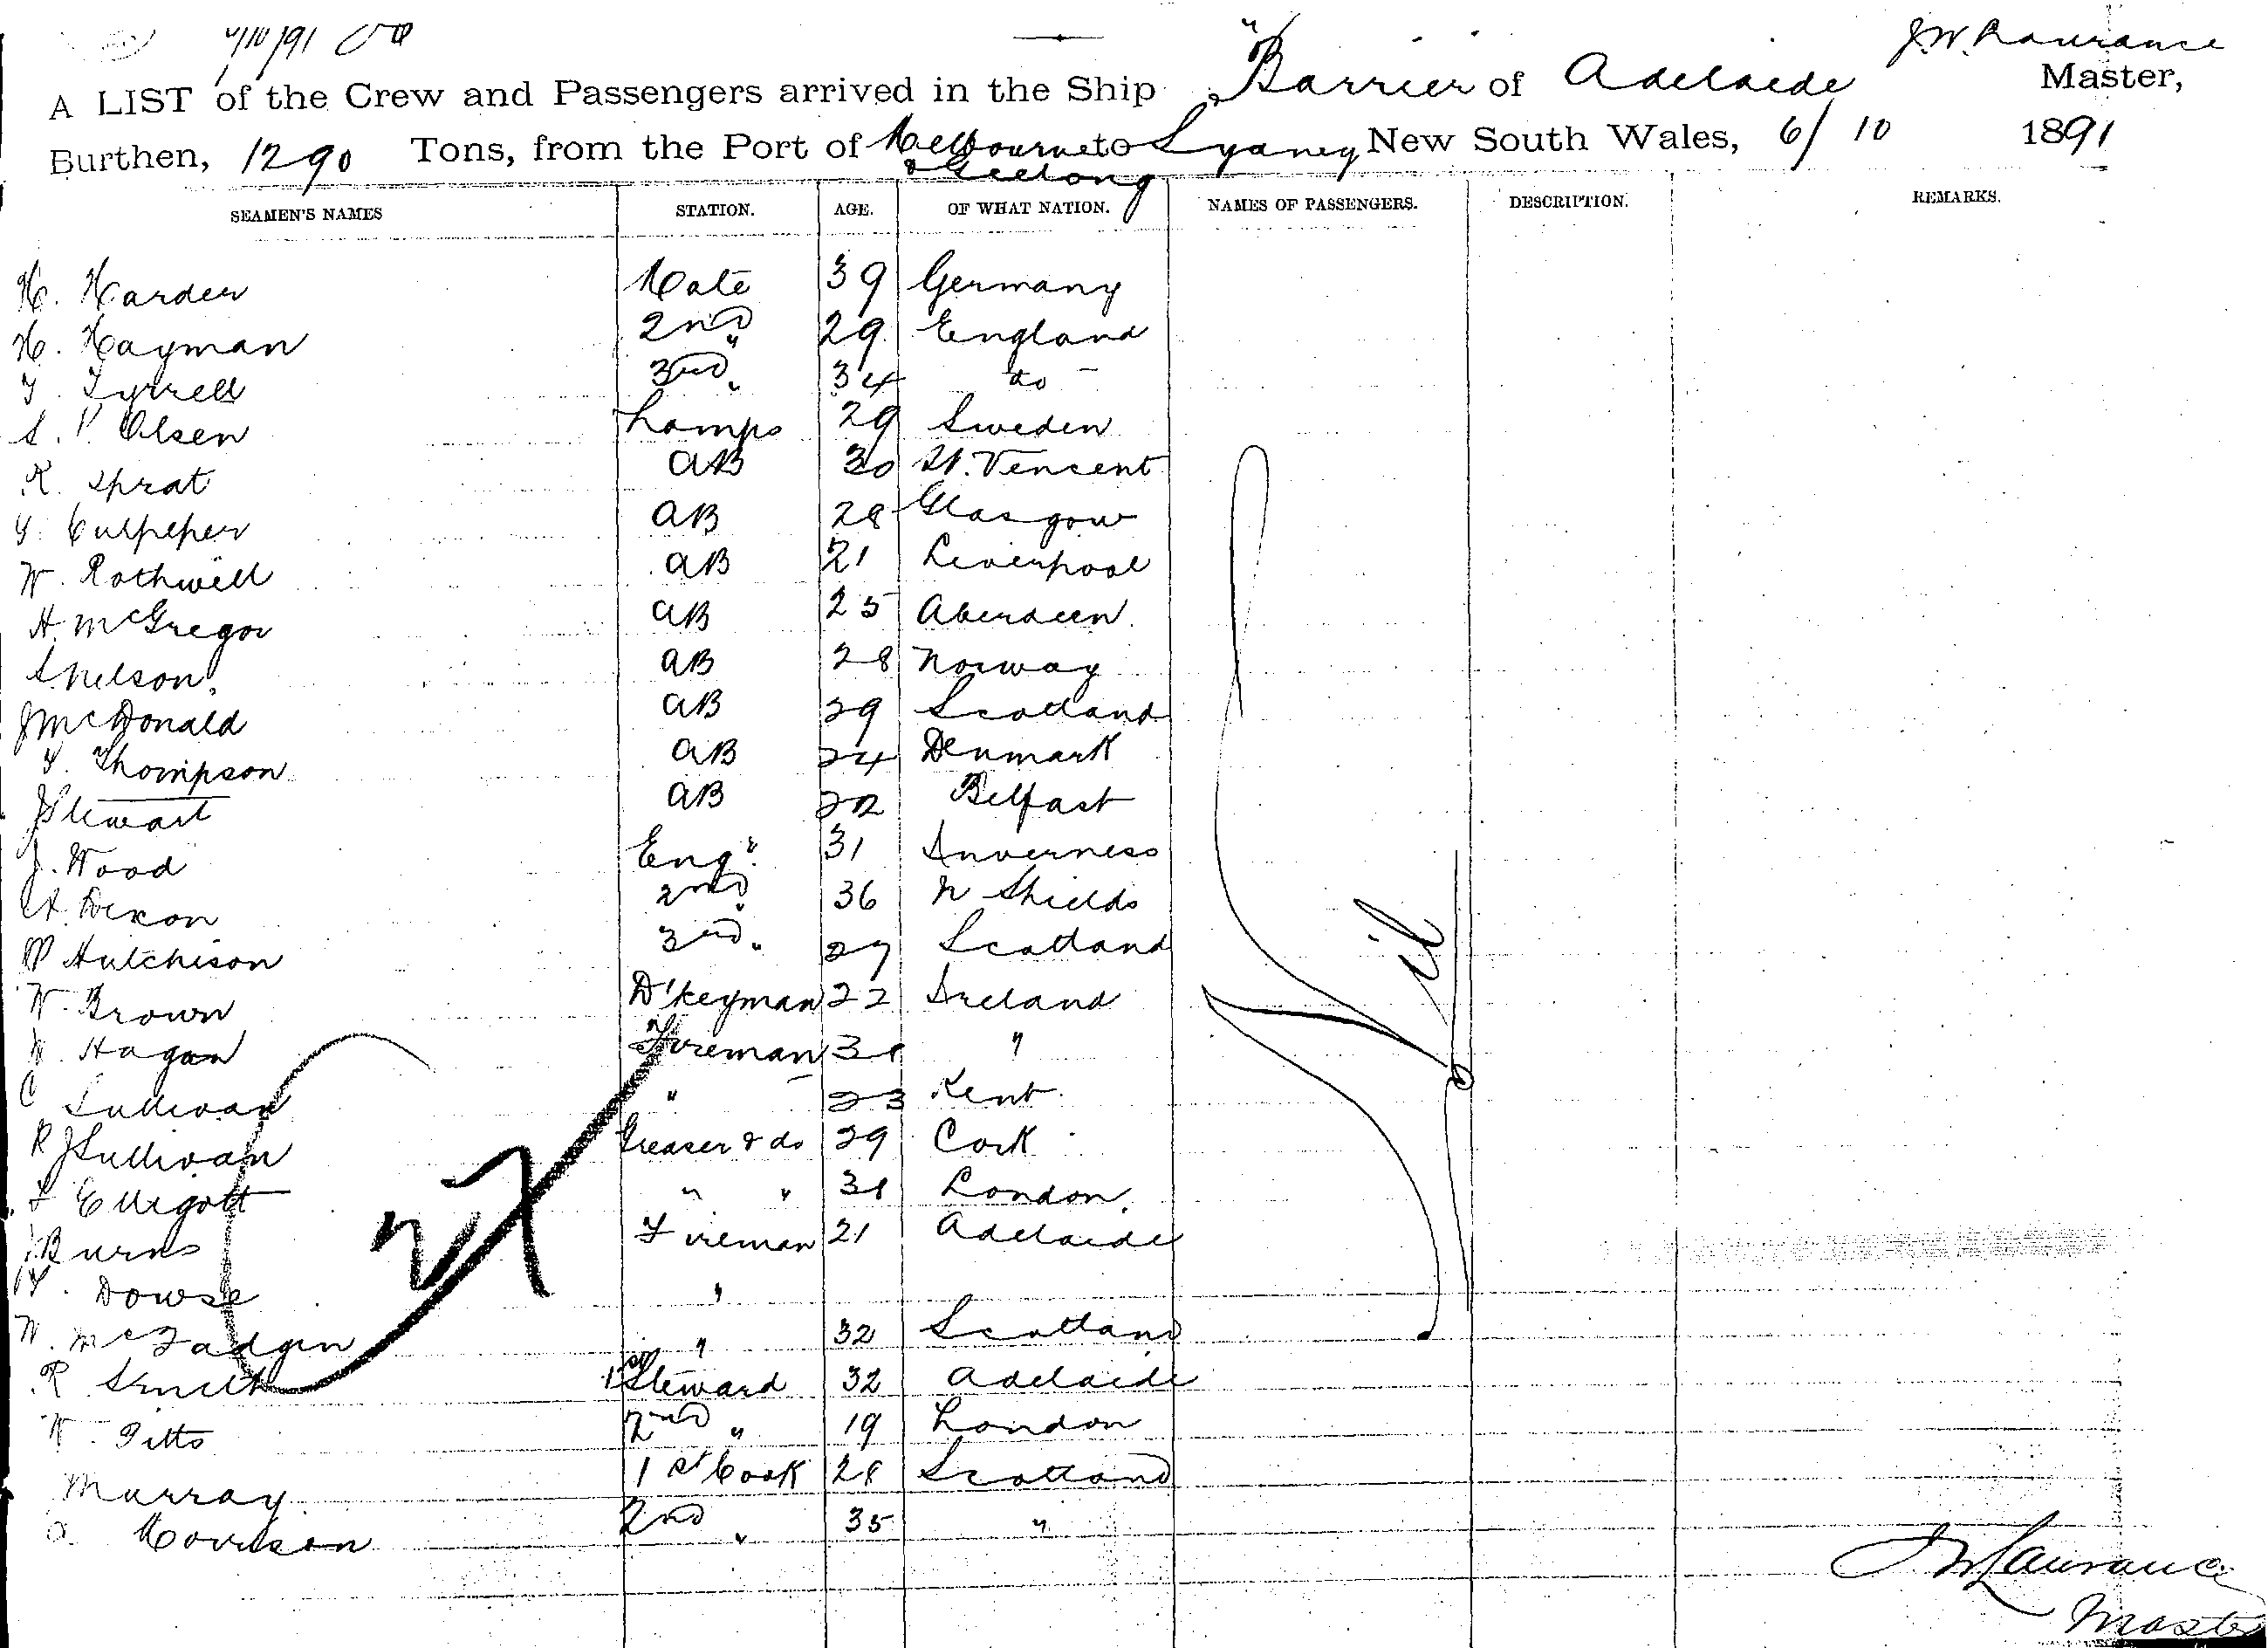 7/10/91
J.W. Laurance
A LIST of the Crew and Passengers arrived in the Ship "Barrier" of Adelaide Master,
Burthen, 1290 Tons, from the Port of Melbourne to Sydney New South Wales, 6/10 1891
& Geelong
SEAMEN'S NAMES STATION. AGE. OF WHAT NATION. NAMES OF PASSENGERS. DESCRIPTION. REMARKS.
H. Harder Mate 39 Germany
H. Hayman 2nd " 29 England
T. Tyrrell 3rd " 34 do
S. V. Olsen Lamps 29 Sweden
R. Sprat AB 30 St. Vencent
G. Culpeper AB 28 Glasgow
W. Rothwell AB 21 Liverpool
A. McGregor AB 25 Aberdeen
S. Nelson AB 28 Norway
J McDonald AB 29 Scotland
T. Thompson AB 24 Denmark
J Stewart AB 22 Belfast
J. Wood Engr. 31 Inverness
A. Dixon 2nd " 36 N Shields
Hutchison 3rd " 27 Scotland
W. Brown D'keyman 22 Ireland
Hagan Fireman 31 "
C Sullivan " 23 Kent
R J Sullivan Greaser & do 29 Cork
Elligott " " 31 London
Burns Fireman 21 Adelaide
Dowse "
W. McFadgen " 32 Scotland
R Smith 1st Steward 32 Adelaide
W. Pitts 2nd " 19 London
Murray 1st Cook 28 Scotland
Morrison 2nd " 35 "
Nil
J W Laurance
Master